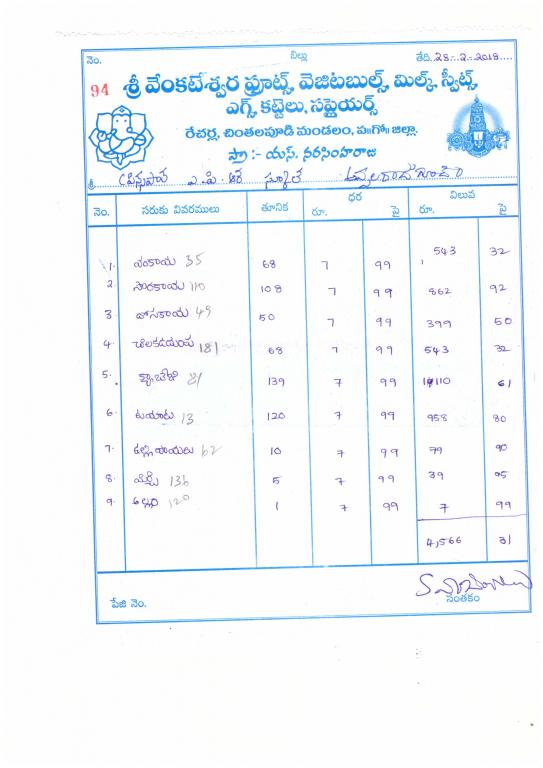 నెం. బిల్లు తేది. 28-2-2018
94 శ్రీ వేంకటేశ్వర ఫ్రూట్స్, వెజిటబుల్స్, మిల్క్, స్వీట్స్,
ఎగ్స్, కట్టెలు, సప్లైయర్స్
రేచర్ల, చింతలపూడి మండలం, ప॥గో॥ జిల్లా.
ప్రొ :- యస్. నరసింహరాజు
శ్రీ ఎ.పి.ఆర్ స్కూల్
నెం. సరుకు వివరములు తూనిక ధర విలువ
రూ. పై రూ. పై
1. వంకాయ 35 68 7 99 543 32
2. సొరకాయ 110 108 7 99 862 92
3. దోసకాయ 49 50 7 99 399 50
4. చిలకడదుంప 181 68 7 99 543 32
5. క్యాబేజి 81 139 7 99 1110 61
6. టమాటు 13 120 7 99 958 80
7. ఉల్లిపాయలు 62 10 7 99 79 90
8. మిర్చి 136 5 7 99 39 95
9. అల్లం 120 1 7 99 7 99
4,566 31
పేజి నెం. సంతకం